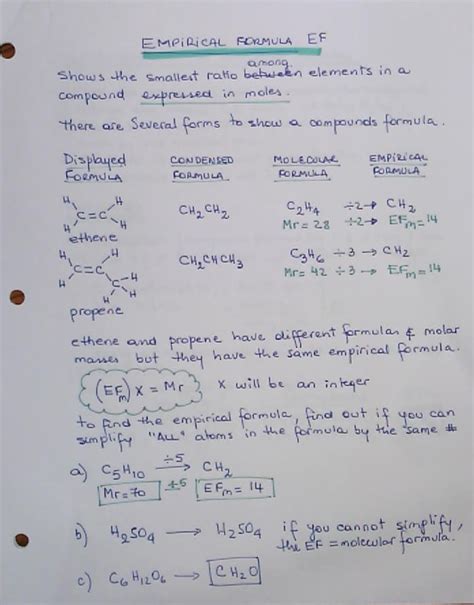 EMPIRICAL FORMULA EF
Shows the smallest ratio between among elements in a
compound expressed in moles.
there are several forms to show a compounds formula.
Displayed FORMULA CONDENSED FORMULA MOLECULAR FORMULA EMPIRICAL FORMULA
H H C=C H H CH2CH2 C2H4 ÷2→ CH2
ethene Mr= 28 ÷2→ EFm=14
H H C=C H C H H H CH2CHCH3 C3H6 ÷3 → CH2
propene Mr= 42 ÷3 → EFm=14
ethene and propene have different formulas & molar
masses but they have the same empirical formula.
(EFm) x = Mr x will be an integer
to find the empirical formula, find out if you can
simplify "ALL" atoms in the formula by the same #
a) C5H10 ÷5 → CH2
Mr=70 ÷5 EFm = 14
b) H2SO4 → H2SO4 if you cannot simplify,
the EF = molecular formula.
c) C6H12O6 → CH2O